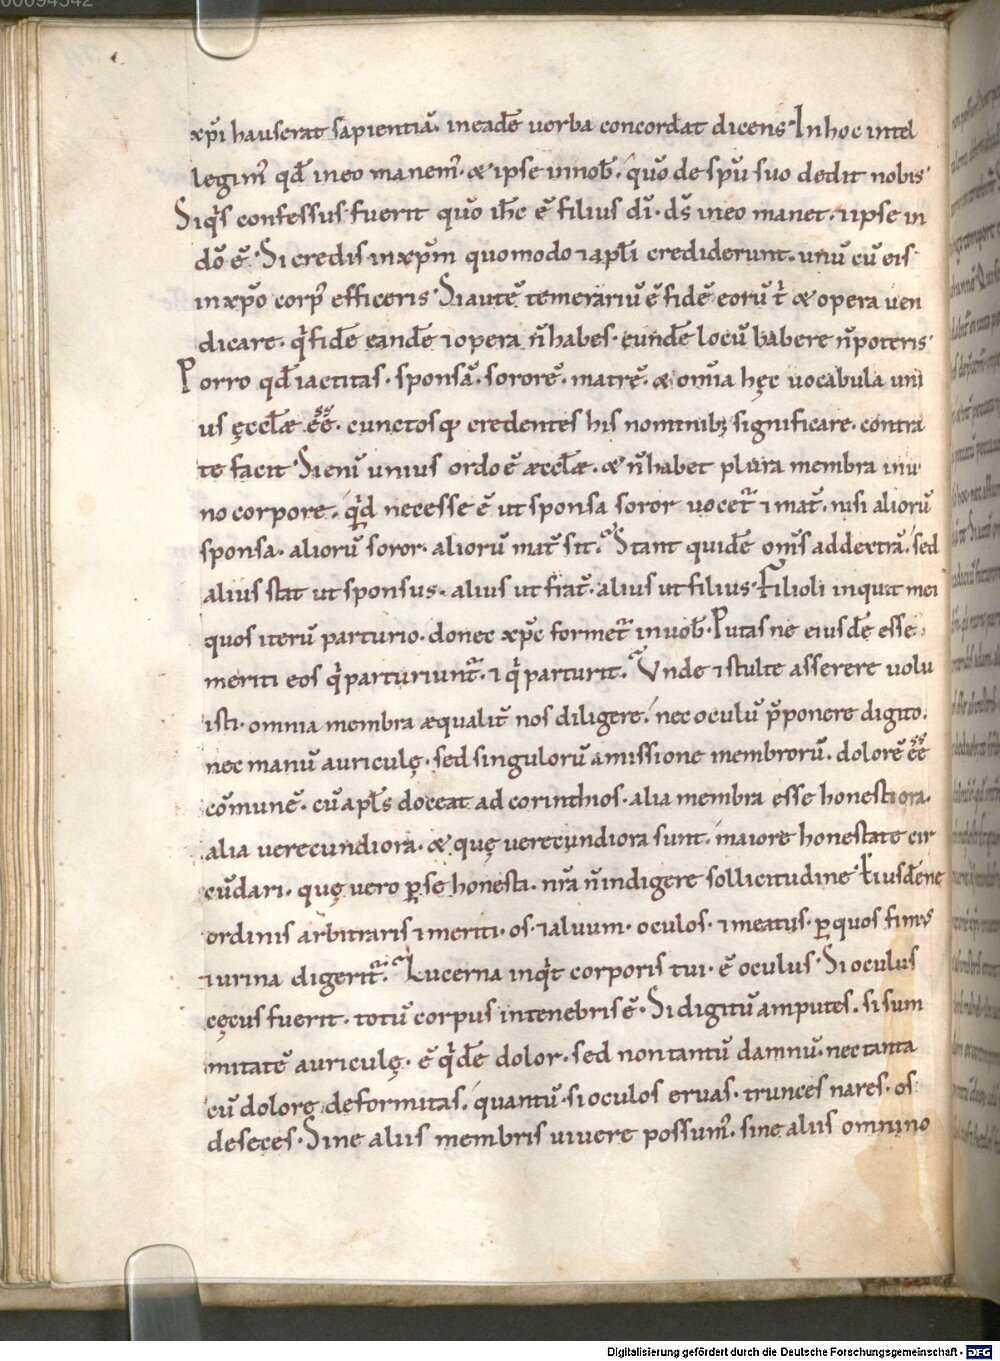 00094542
xp̄i hauserat sapientiā. in eadē uerba concordat dicens. In hoc intel
legim᷒ qđ in eo manem᷒. & ipse in nob̄. quō de sp̄u suo dedit nobis.
Siq̇s confessus fuerit quō ih̄c ē filius dī. dš in eo manet. ⁊ ipse in
dō ē. Si credis in xp̄m quomodo ⁊ apłi crediderunt. unū cū eis
in xp̄o corp᷒ efficeris. Si autē temerariū ē fidē eorū t̄ & opera uen
dicare. q̇ fidē eandē ⁊ opera n̄ habes. eundē locū habere n̄ poteris.
Porro qđ iactitas. sponsā. sororē. matrē. & om̄ia hęc uocabula uni
us ęccłæ ēē. cunctosq; credentes his nominib; significare. contra
te facit. Si enī unius ordo ē æccłæ. & n̄ habet plura membra in u
no corpore. q̇d necesse ē ut sponsa soror uocet᷒ ⁊ mat̄. nisi aliorū
sponsa. aliorū soror. aliorū mat̄ sit. Stant quidē om̄s ad dextrā. sed
alius stat ut sponsus. alius ut frat̄. alius ut filius. Filioli inquit mei
quos iterū parturio. donec xp̄c formet᷒ in uob̄. Putas ne eiusdē esse
meriti eos q̇ parturiunt᷒. ⁊ q̇ parturit. Vnde ⁊ stulte asserere uolu
isti. omnia membra æqualit̄ nos diligere. nec oculū p̄ponere digito.
nec manū auriculę. sed singulorū amissione membrorū. dolorē ēē
cōmunē. cū apłs doceat ad corinthios. alia membra esse honestiora.
alia uerecundiora. & quę uerecundiora sunt. maiore honestate cir
cūdari. quę uero ꝑ se honesta. nr̄a n̄ indigere sollicitudine. Eiusdē ne
ordinis arbitraris ⁊ meriti. os ⁊ aluum. oculos. ⁊ meatus. ꝑ quos fimus
⁊ urina digerit᷒. Lucerna inq̇t corporis tui. ē oculus. Si oculus
cęcus fuerit. totū corpus in tenebris ē. Si digitū amputes. si sum
mitatē auriculę. ē q̇dē dolor. sed non tantū damnū. nec tanta
cū dolore deformitas. quantū. si oculos eruas. trunces nares. os
deseces. Sine aliis membris uiuere possum᷒. sine aliis omnino
Digitalisierung gefördert durch die Deutsche Forschungsgemeinschaft - DFG